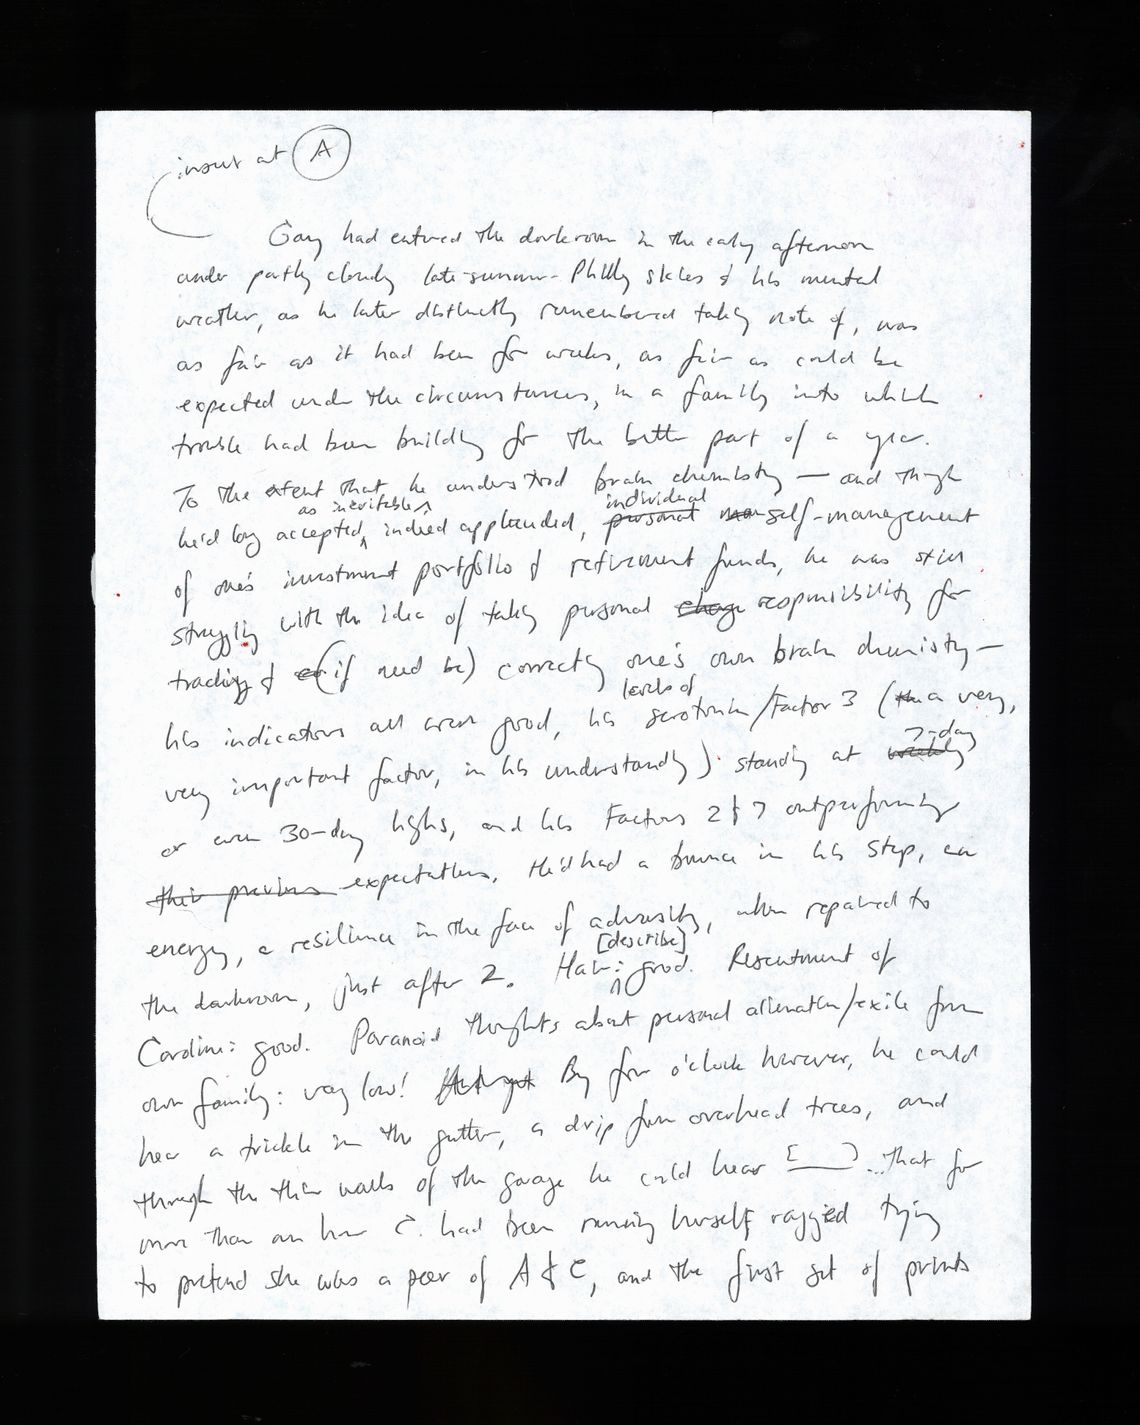 insert at A
Gary had entered the darkroom in the early afternoon
under partly cloudy late-summer-Philly skies & his mental
weather, as he later distinctly remembered taking note of, was
as fair as it had been for weeks, as fair as could be
expected under the circumstances, in a family into which
trouble had been building for the better part of a year.
To the extent that he understood brain chemistry — and though
as inevitable individual
he'd long accepted, indeed applauded, personal self-management
of one's investment portfolio & retirement funds, he was still
struggling with the idea of taking personal charge responsibility for
tracking & (if need be) correcting one's own brain chemistry —
levels of
his indicators all were good, his serotonin/Factor 3 (a very,
7-day
very important factor, in his understanding) standing at weekly
or even 30-day highs, and his Factors 2 & 7 outperforming
their previous expectations. He'd had a bounce in his step, an
energy, a resilience in the face of adversity, when repaired to
[describe]
the darkroom, just after 2. Hair: good. Resentment of
Caroline: good. Paranoid thoughts about personal alienation/exile from
own family: very low! By four o'clock however, he could
hear a trickle in the gutter, a drip from overhead trees, and
through the thin walls of the garage he could hear [ ]...that for
more than an hour C. had been running herself ragged trying
to pretend she was a peer of A & C, and the first set of prints